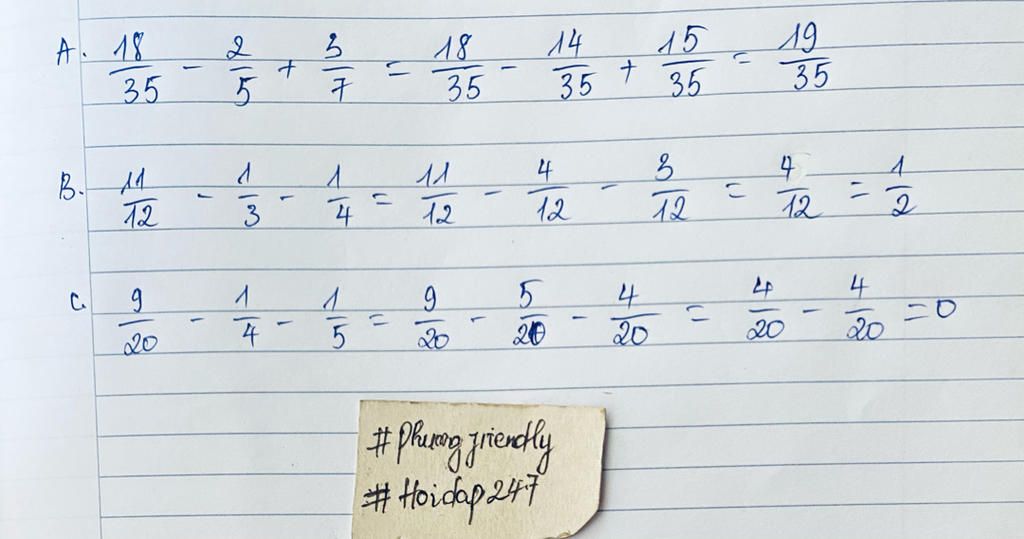 A. 18/35 - 2/5 + 3/7 = 18/35 - 14/35 + 15/35 = 19/35
B. 11/12 - 1/3 - 1/4 = 11/12 - 4/12 - 3/12 = 4/12 = 1/2
C. 9/20 - 1/4 - 1/5 = 9/20 - 5/20 - 4/20 = 4/20 - 4/20 = 0
# Phuong friendly
# Hoidap247